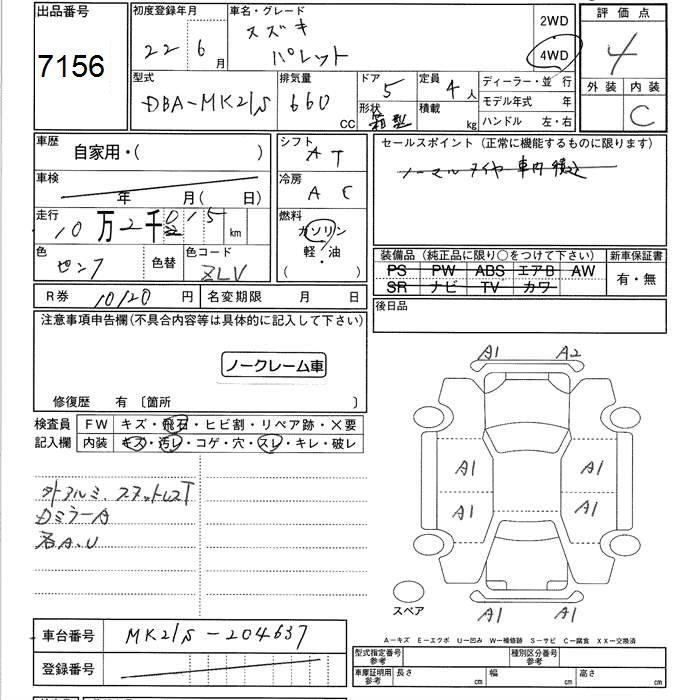 出品番号
7156
初度登録年月
22年6月
車名・グレード
スズキ
パレット
2WD
4WD
評価点
4
外装 内装
C
型式
DBA-MK21S
排気量
660 CC
ドア
5
形状
箱型
定員
4人
積載
kg
ディーラー・並行
モデル年式 年
ハンドル 左・右
車歴
自家用・( )
車検
年 月( 日)
走行
10万2千015km
色
ピンク
色替
色コード
ZLV
シフト
AT
冷房
AC
燃料
ガソリン
軽・油
( )
セールスポイント(正常に機能するものに限ります)
ノーマルタイヤ車内積込
装備品(純正品に限り○をつけて下さい)
PS PW ABS エアB AW
SR ナビ TV カワ
新車保証書
有・無
後日品
R券 10120円
名変期限 月 日
注意事項申告欄(不具合内容等は具体的に記入して下さい)
ノークレーム車
修復歴 有〔箇所 〕
検査員
記入欄
FW キズ・飛石・ヒビ割・リペア跡・×要
内装 キズ・汚レ・コゲ・穴・スレ・キレ・破レ
外アルミ.スタットレスT
DミラーA
各A.U
A1 A2
A1 A1
A1 A1
A1 A1
スペア
A-キズ E-エクボ U-凹み W-補修跡 S-サビ C-腐食 XX-交換済
車台番号
MK21S-204637
登録番号
型式指定番号
参考
種別区分番号
参考
車庫証明用
参考
長さ cm
幅 cm
高さ cm